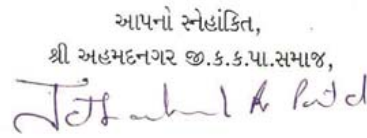 આપનો સ્નેહાંકિત,
શ્રી અહમદનગર જી.ક.ક.પા.સમાજ,